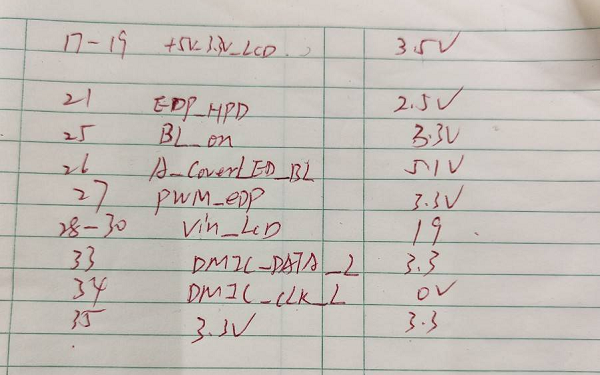 17-19 +5V_3.3V_LCD 3.5V
21 EDP_HPD 2.5V
25 BL_on 3.3V
26 A_CoverLED_BL 5.1V
27 PWM_eDP 3.3V
28-30 Vin_LCD 19
33 DMIC_DATA_L 3.3
34 DMIC_CLK_L 0V
35 3.3V 3.3